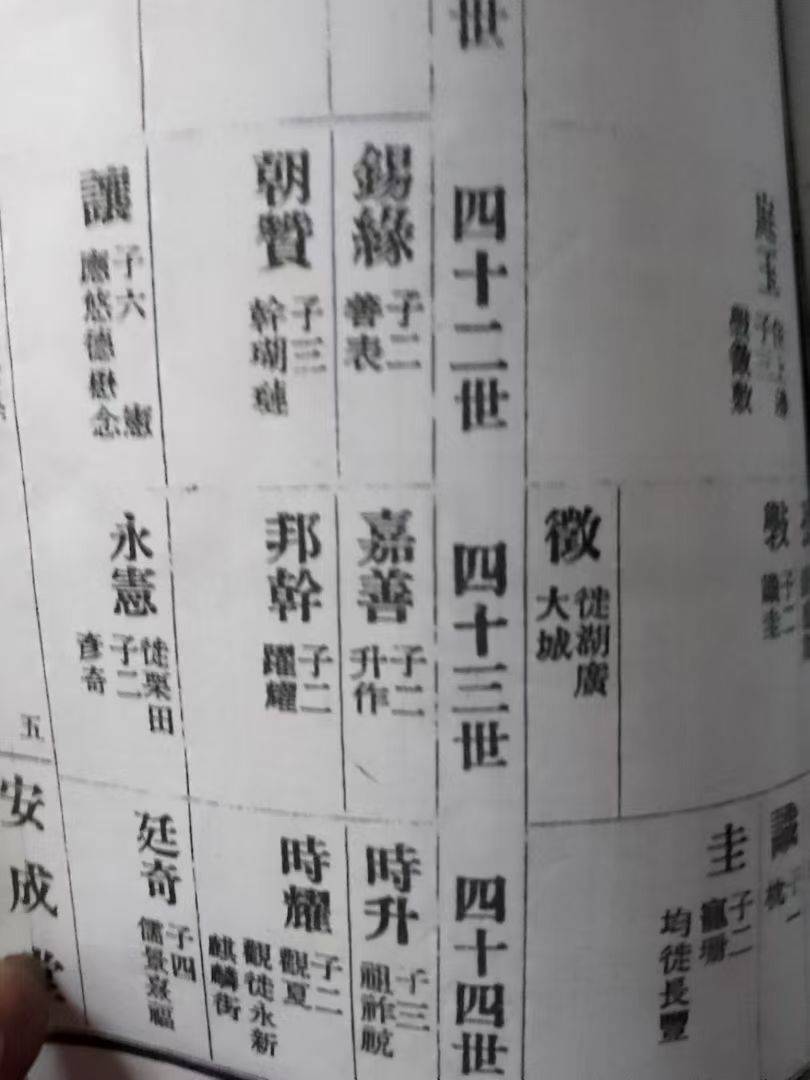 子三
圭
子二
均徙長豐
徵
徙湖廣
大城
世
四十二世
四十三世
四十四世
錫緣
子二
善表
嘉善
子二
升作
時升
子三
祖祚脫
朝贊
子三
幹瑚璉
邦幹
子二
躍耀
時耀
子二
觀夏
觀徙永新
麒麟街
讓
子六 憲
應悠德懋念
永憲
徙栗田
子二
彥奇
廷奇
子四
儒景袞福
五
安成堂